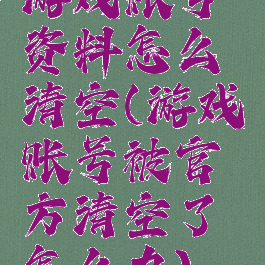 游戏账号
资料怎么
清空(游戏
账号被官
方清空了
怎么办)